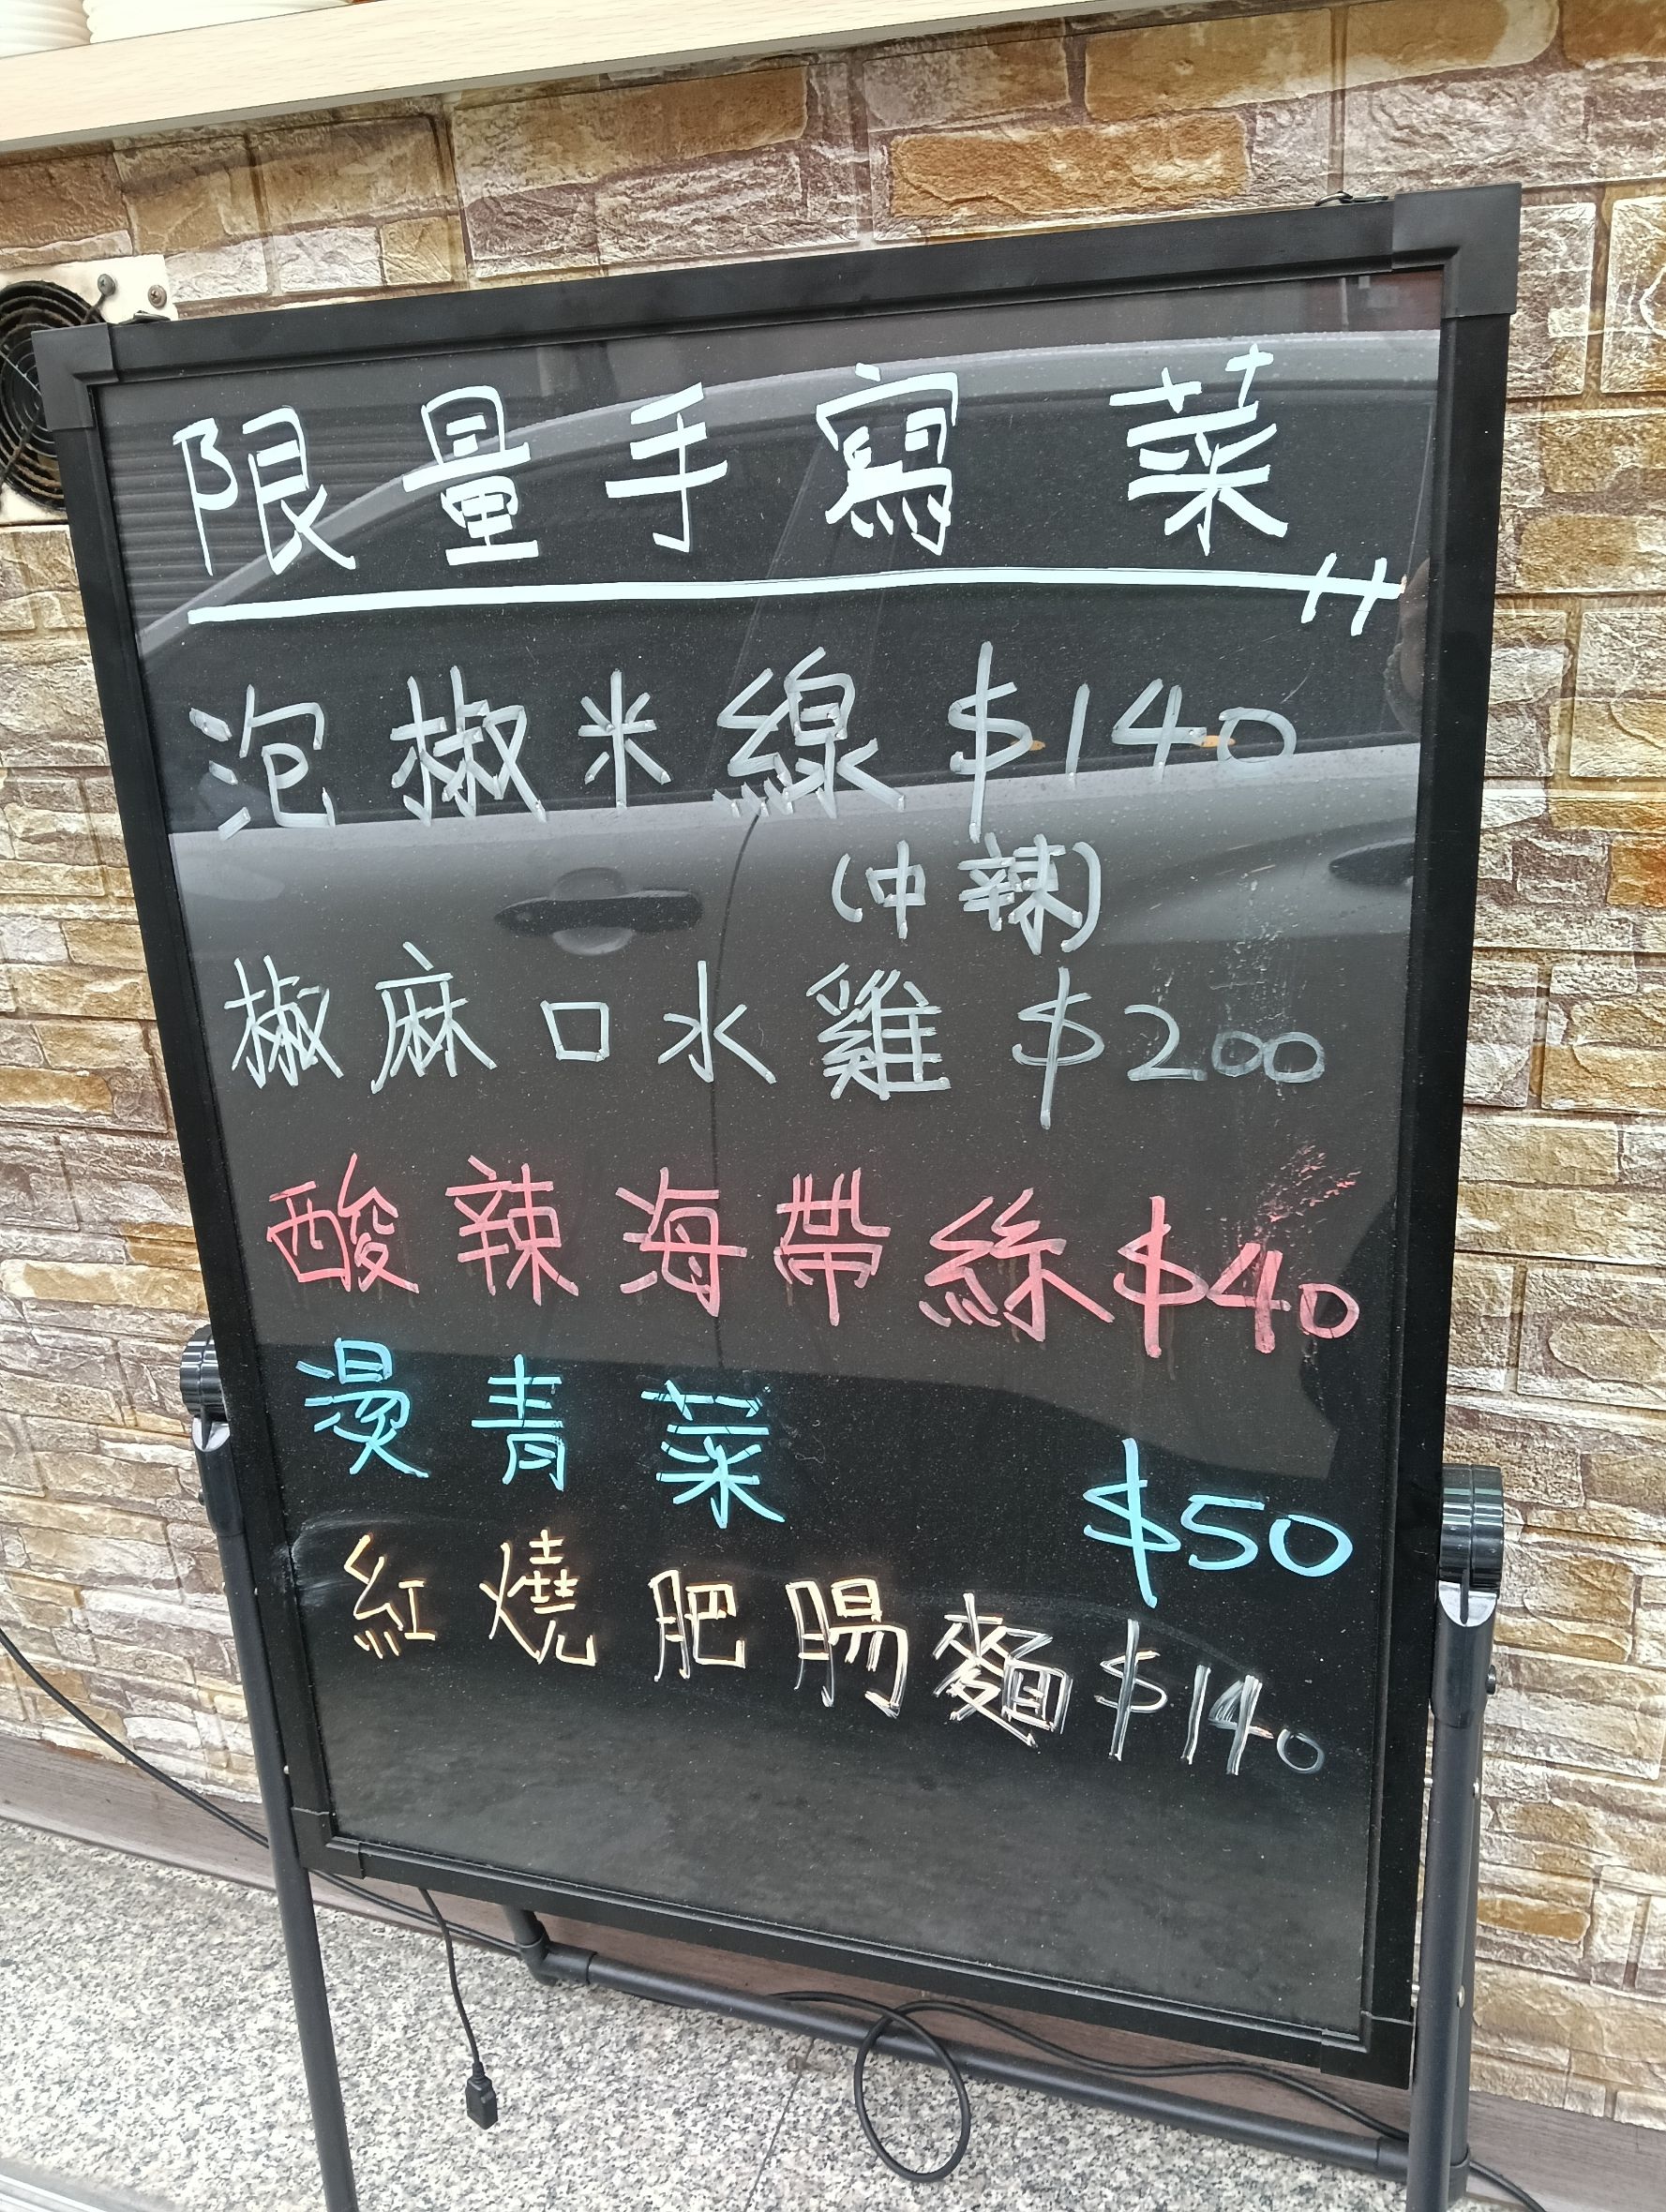 限量手寫菜
泡椒米線 $140
(中辣)
椒麻口水雞 $200
酸辣海帶絲 $40
燙青菜 $50
紅燒肥腸麵 $140